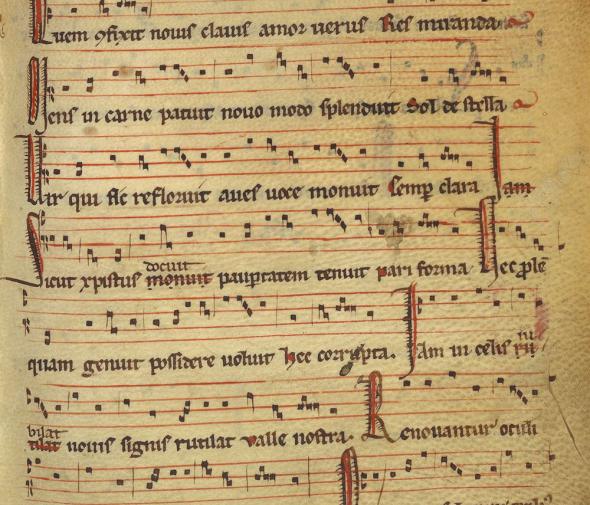 Quem 9fixit nouis clauis amor uerus Res miranda
Mens in carne patuit nouo modo splenduit Sol de stella
Vir qui sic refloruit aues uoce monuit semper clara Iam
docuit
Sicut xpistus monuit paupertatem tenuit pari forma Nec prolem
quam genuit possidere uoluit hec corrupta. Iam in celis ru
bilat
tilat nouis signis rutilat valle nostra. Renouantur oculi